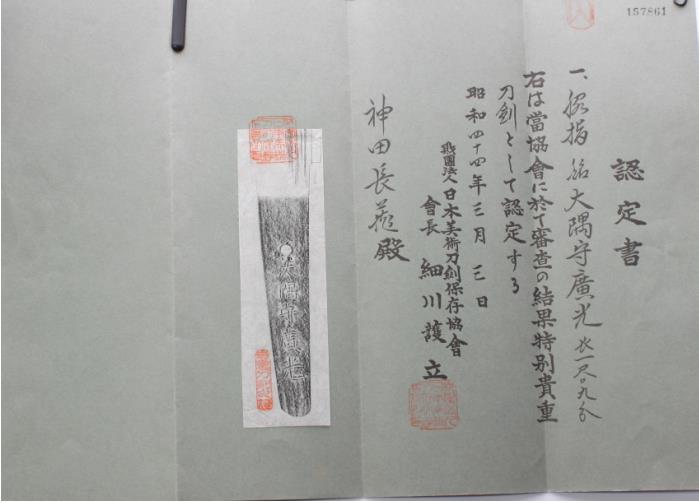 157861
認定書
一、脇指 銘 大隅守廣光 长一尺〇九分
右は當協會に於て審査の結果特別貴重
刀劍として認定する
昭和四十四年三月三日
財團法人日本美術刀劍保存協會
會長 細川護立
神田長 殿
大隅守廣光